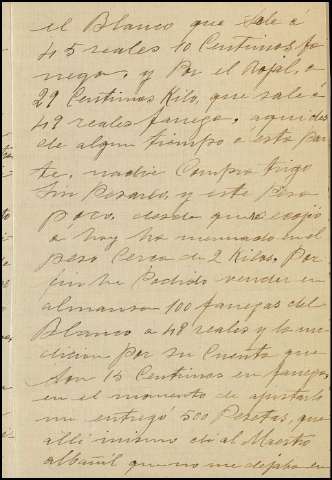 el Blanco que sale á
45 reales 10 Centimos fa
nega, y Por el Rojal, a
29 Centimos Kilo, que sale á
49 reales fanega, aqui des
de algun tiempo a esta par
te, nadie Compra trigo
sin Pesarlo, y este pesa
poco, desde que se cogió
a hoy ha menguado en el
peso cerca de 2 Kilos. Por
fin he Podido vender en
almansa 100 fanegas del
Blanco a 48 reales y la me
dicion por su Cuenta que
son 15 Centimos en fanega,
en el momento de ajustarlo
me entregó 500 Pesetas, que
alli mismo di al Maestro
albañil que no me dejaba en